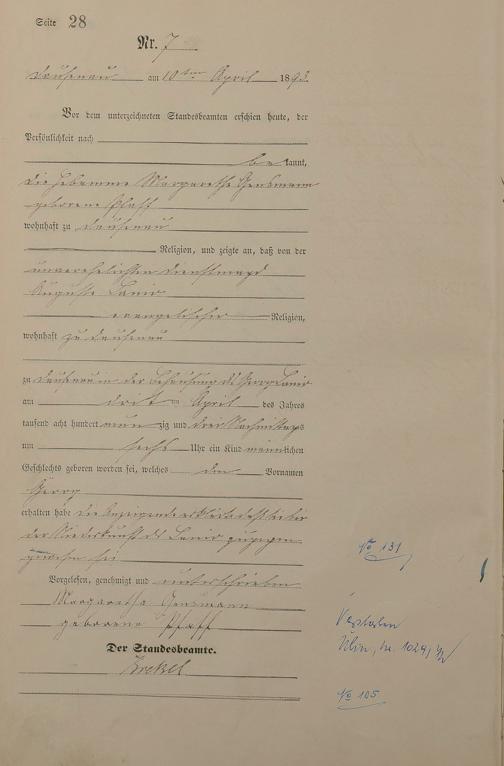 Seite 28
Nr. 7
Dausenau am 10ten April 1893.
Vor dem unterzeichneten Standesbeamten erschien heute, der
Persönlichkeit nach
bekannt,
die Hebamme Margaretha Gensmann
geborene Pfaff
wohnhaft zu Dausenau
Religion, und zeigte an, daß von der
unverehelichten Dienstmagd
Auguste Lanio
evangelischer Religion,
wohnhaft zu Dausenau
zu Dausenau in der Behausung des Georg Lanio
am dritten April des Jahres
tausend acht hundert neunzig und drei Nachmittags
um sechs Uhr ein Kind männlichen
Geschlechts geboren worden sei, welches den Vornamen
Georg
erhalten habe die Anzeigende erklärte daß sie bei
der Niederkunft der Lanio zugegen
gewesen sei
Vorgelesen, genehmigt und unterschrieben
Margaretha Gensmann
geborene Pfaff
Der Standesbeamte.
No 131
Verstorben
No 105